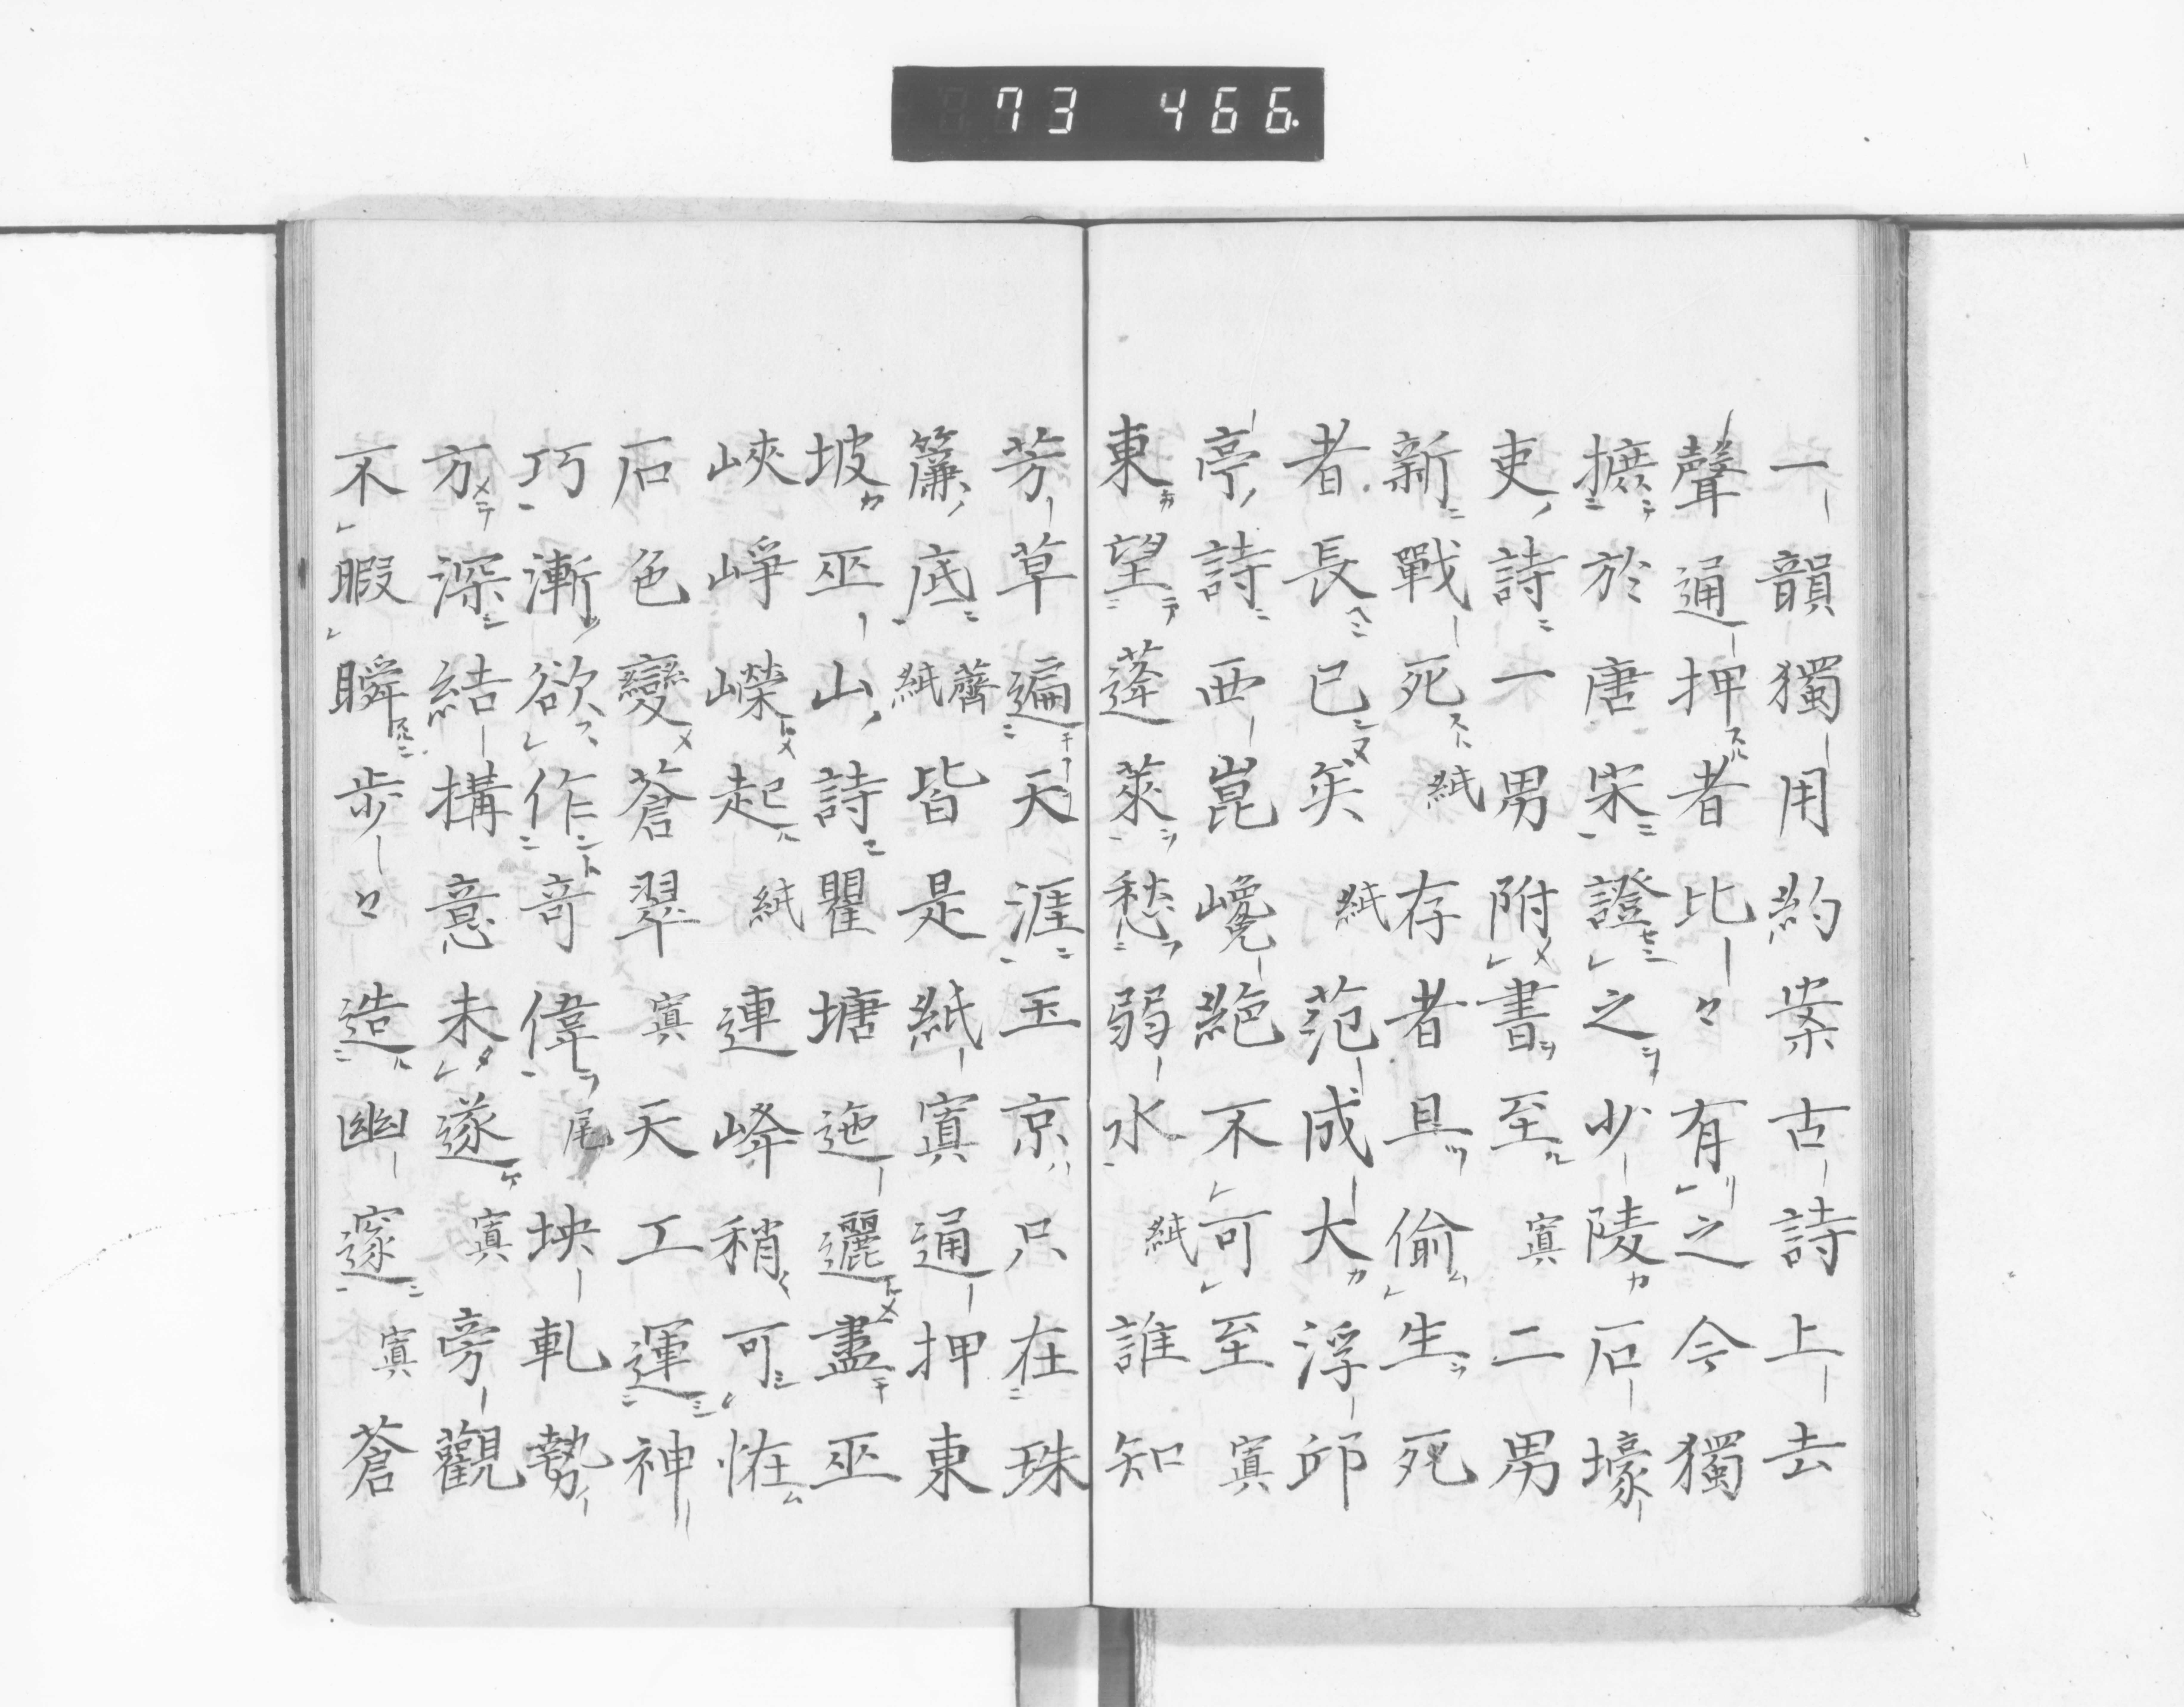 73 466.
一韻獨用約案古詩上去
聲通押者比々有之今獨
摭於唐宋證之少陵石壕
吏詩一男附書至寘二男
新戰死紙存者且偷生死
者長已矣紙范成大浮邱
亭詩西崑巉絶不可至寘
東望蓬萊愁弱水紙誰知
芳草遍天涯玉京只在珠
簾底薺紙皆是紙寘通押東
坡巫山詩瞿塘迤邐盡巫
峽崢嶸起紙連峰稍可恠
石色變蒼翠寘天工運神
巧漸欲作奇偉尾坱軋勢
方深結構意未遂寘旁觀
不暇瞬歩々造幽邃寘蒼